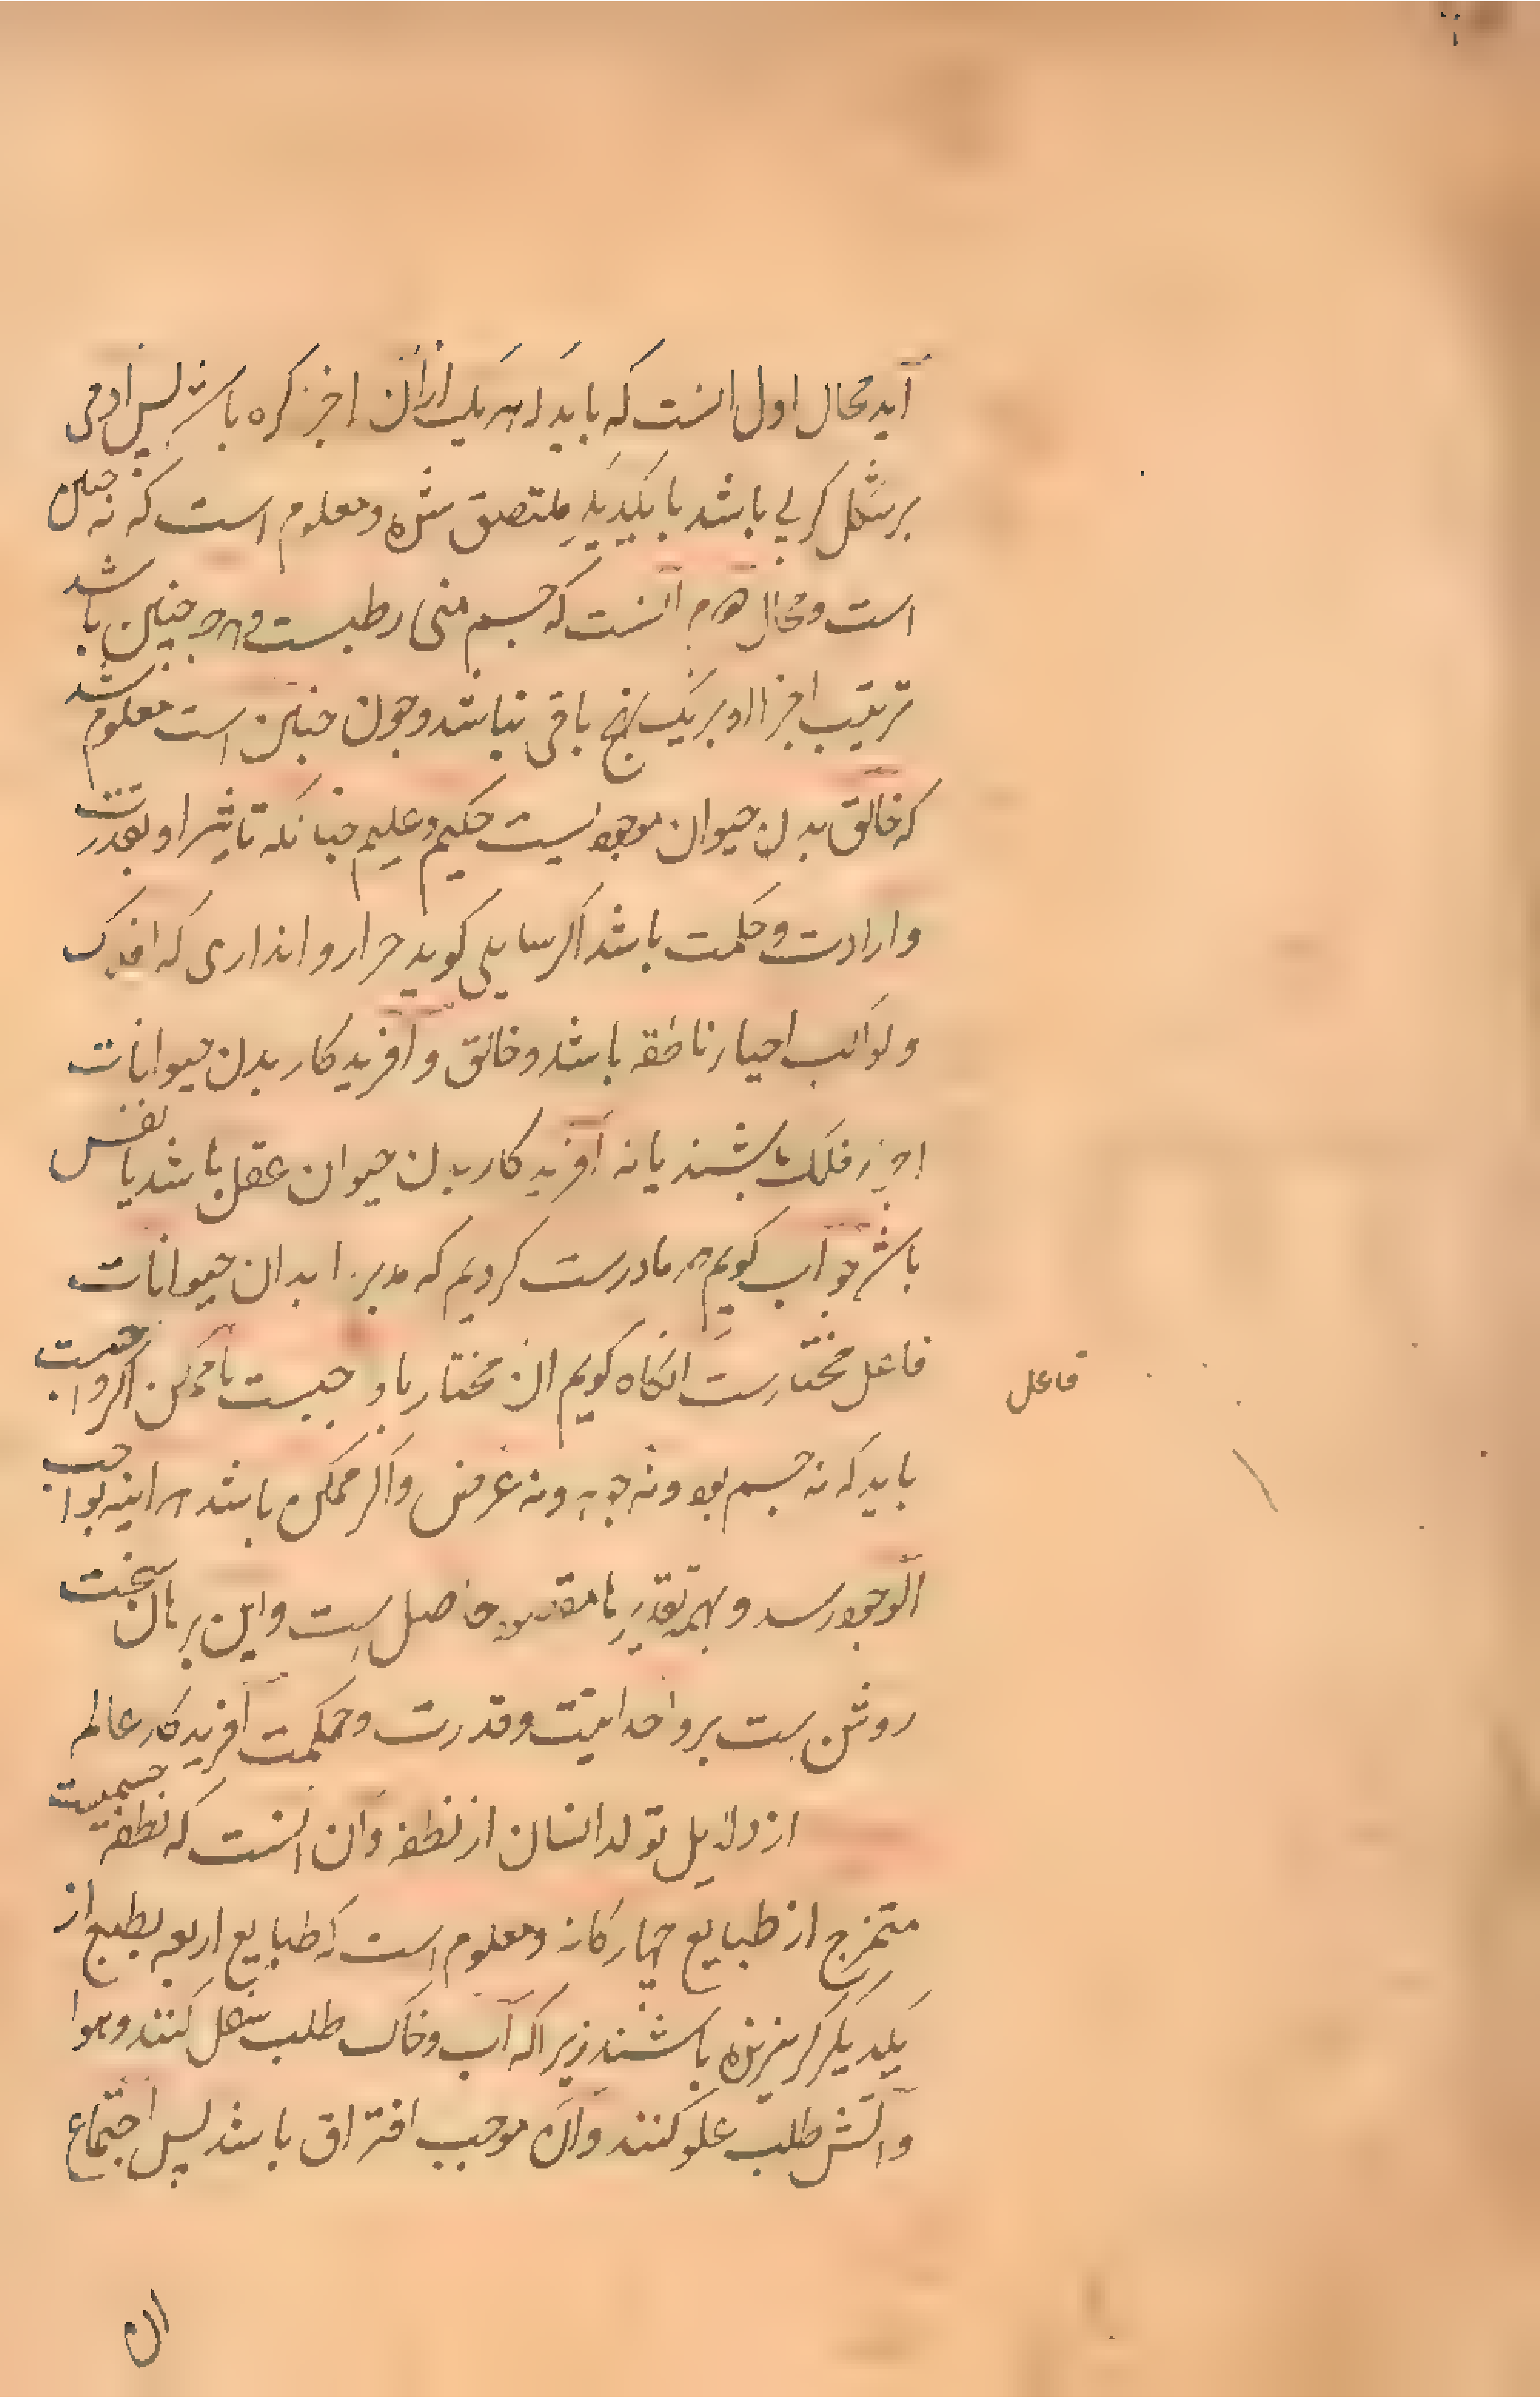 آید محال اول انست که باید که هر یک از ان اجزا کره باشد پس ادمی
بر شکل کرهای باشد با یکدیگر ملتصق شده و معلوم است که نه چنین
است و محال دوم آنست که جسم منی رطبست و هرچه چنین باشد
ترتیب اجزا او بریک نهج باقی نباشد و چون چنین است معلوم شد
که خالق بدن حیوان موجودیست حکیم و علیم چنانکه تاثیر او بقدرت
و ارادت و حکمت باشد اکر سایلی کوید چرا روا نداری که افلاک
و کواکب احیاء ناطقه باشد و خالق و آفریدکار بدن حیوانات
اجزاء فلک باشند یا نه آفریدکار بدن حیوان عقل باشد یا نفس
باشد جواب کویم ما درست کردیم که مدبر ابدان حیوانات
فاعل مختارست انکاه کویم ان مختار یا واجبست یا ممکن اکر واجبست
باید که نه جسم بود و نه جوهر و نه عرض و اکر ممکن باشد هراینه بواجب
الوجود رسد و بهمه تقدیرها مقصود حاصل است و این برهان سخت
روشن است بر واحدانیت و قدرت و حکمت آفریدکار عالم
از دلایل تولد انسان از نطفه و ان انست که نطفه جسمیست
متمزج از طبایع چهارکانه و معلوم است که طبایع اربعه بطبع از
یکدیکر کریزنده باشند زیرا که آب و خاک طلب سفل کنند و هوا
و آتش طلب علو کنند و ان موجب افتراق باشد پس اجتماع
ان
فاعل